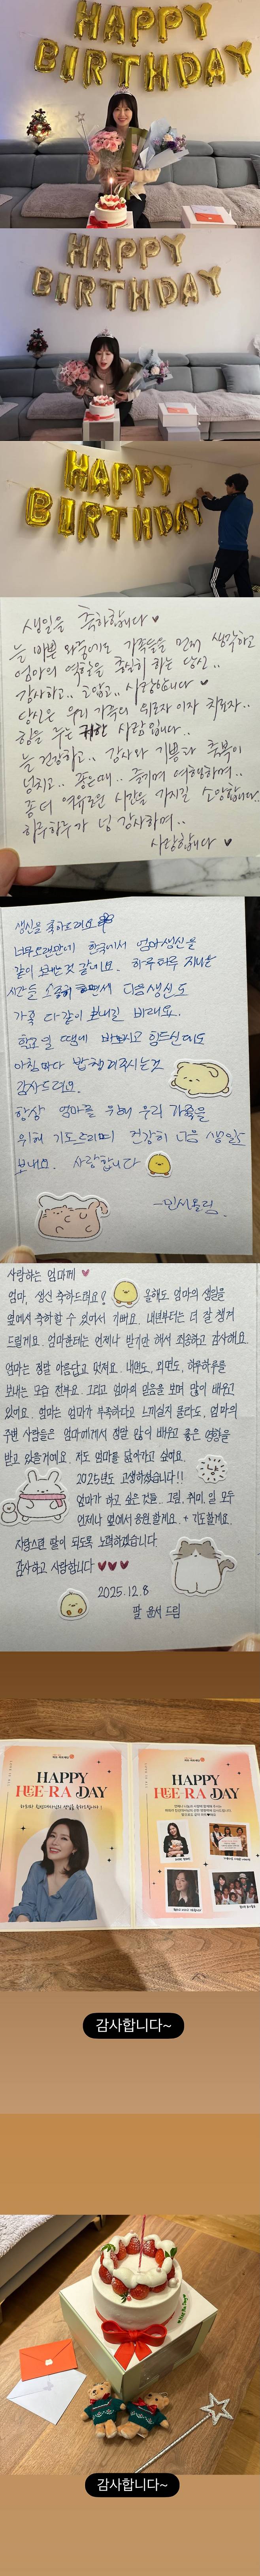 HAPPY
BIRTHDAY
HAPPY
BIRTHDAY
HAPPY
BIRTHDAY
생일을 축하합니다 ♥
늘 바쁜 와중에도 가족들을 먼저 생각하고
엄마의 역할을 충실히 하는 당신..
감사하고.. 고맙고.. 사랑합니다 ♥
당신은 우리 가족의 위로자 이자 치료자..
힘을 주는 귀한 사람입니다..
늘 건강하고.. 감사와 기쁨과 축복이
넘치고.. 좋은때.. 즐기며 여행하며..
좀 더 여유로운 시간을 가지길 소망합니다..
하루하루가 넘 감사하며..
사랑합니다 ♥
생신을 축하드려요
너무 오랜만에 한국에서 엄마생신을
같이 보낸 것 같네요. 하루하루 지나는
시간들 소중히 하면서 다음생신도
가족 다같이 보내길 바래요.
학교일 땜에 바쁘시고 힘드신데도
아침마다 밥 해 주시는것
감사드려요.
항상 엄마를 위해 우리 가족을
위해 기도드리며 건강히 다음 생일도
보내요. 사랑합니다
-민서올림.
사랑하는 엄마께 ♥
엄마, 생신 축하드려요? 올해도 엄마의 생일을
옆에서 축하할 수 있어서 기뻐요. 내년부터는 더 잘 챙겨
드릴게요. 엄마한테는 언제나 받기만 해서 죄송하고 감사해요.
엄마는 정말 아름답고 멋져요. 내면도, 외면도, 하루하루를
보내는 모습 전부요. 그리고 엄마의 믿음을 보며 많이 배우고
있어요. 엄마는 엄마가 부족하다고 느끼실지 몰라도, 엄마의
주변 사람들은 엄마에게서 정말 많이 배우고 좋은 영향을
받고 있을거예요. 저도 엄마를 닮아가고 싶어요.
2025년도 고생하셨습니다!!
엄마가 하고 싶은 것들.. 그림, 취미, 일 모두
언제나 옆에서 응원할게요. + 기도할게요.
자랑스런 딸이 되도록 노력하겠습니다.
감사하고 사랑합니다 ♥♥♥
2025.12.8
딸 윤서 드림
HAPPY
HEE-RA DAY
HAPPY
HEE-RA DAY
감사합니다~
감사합니다~